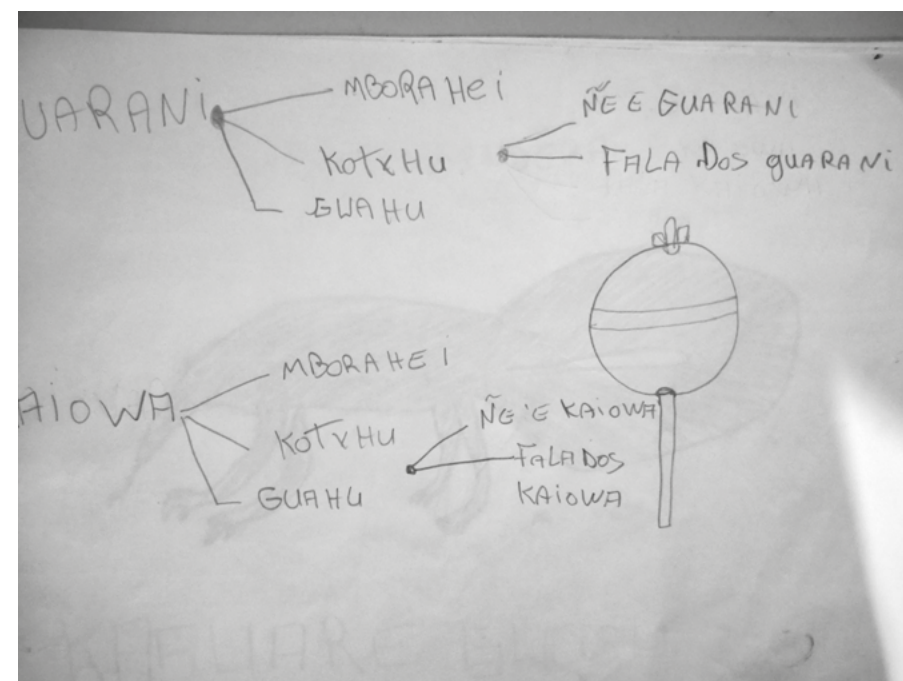 UARANI
MBORAHEI
KOTXHU
GUAHU
ÑE E GUARANI
FALA DOS GUARANI
AIOWA
MBORAHEI
KOTXHU
GUAHU
ÑE'E KAIOWA
FALA DOS
KAIOWA